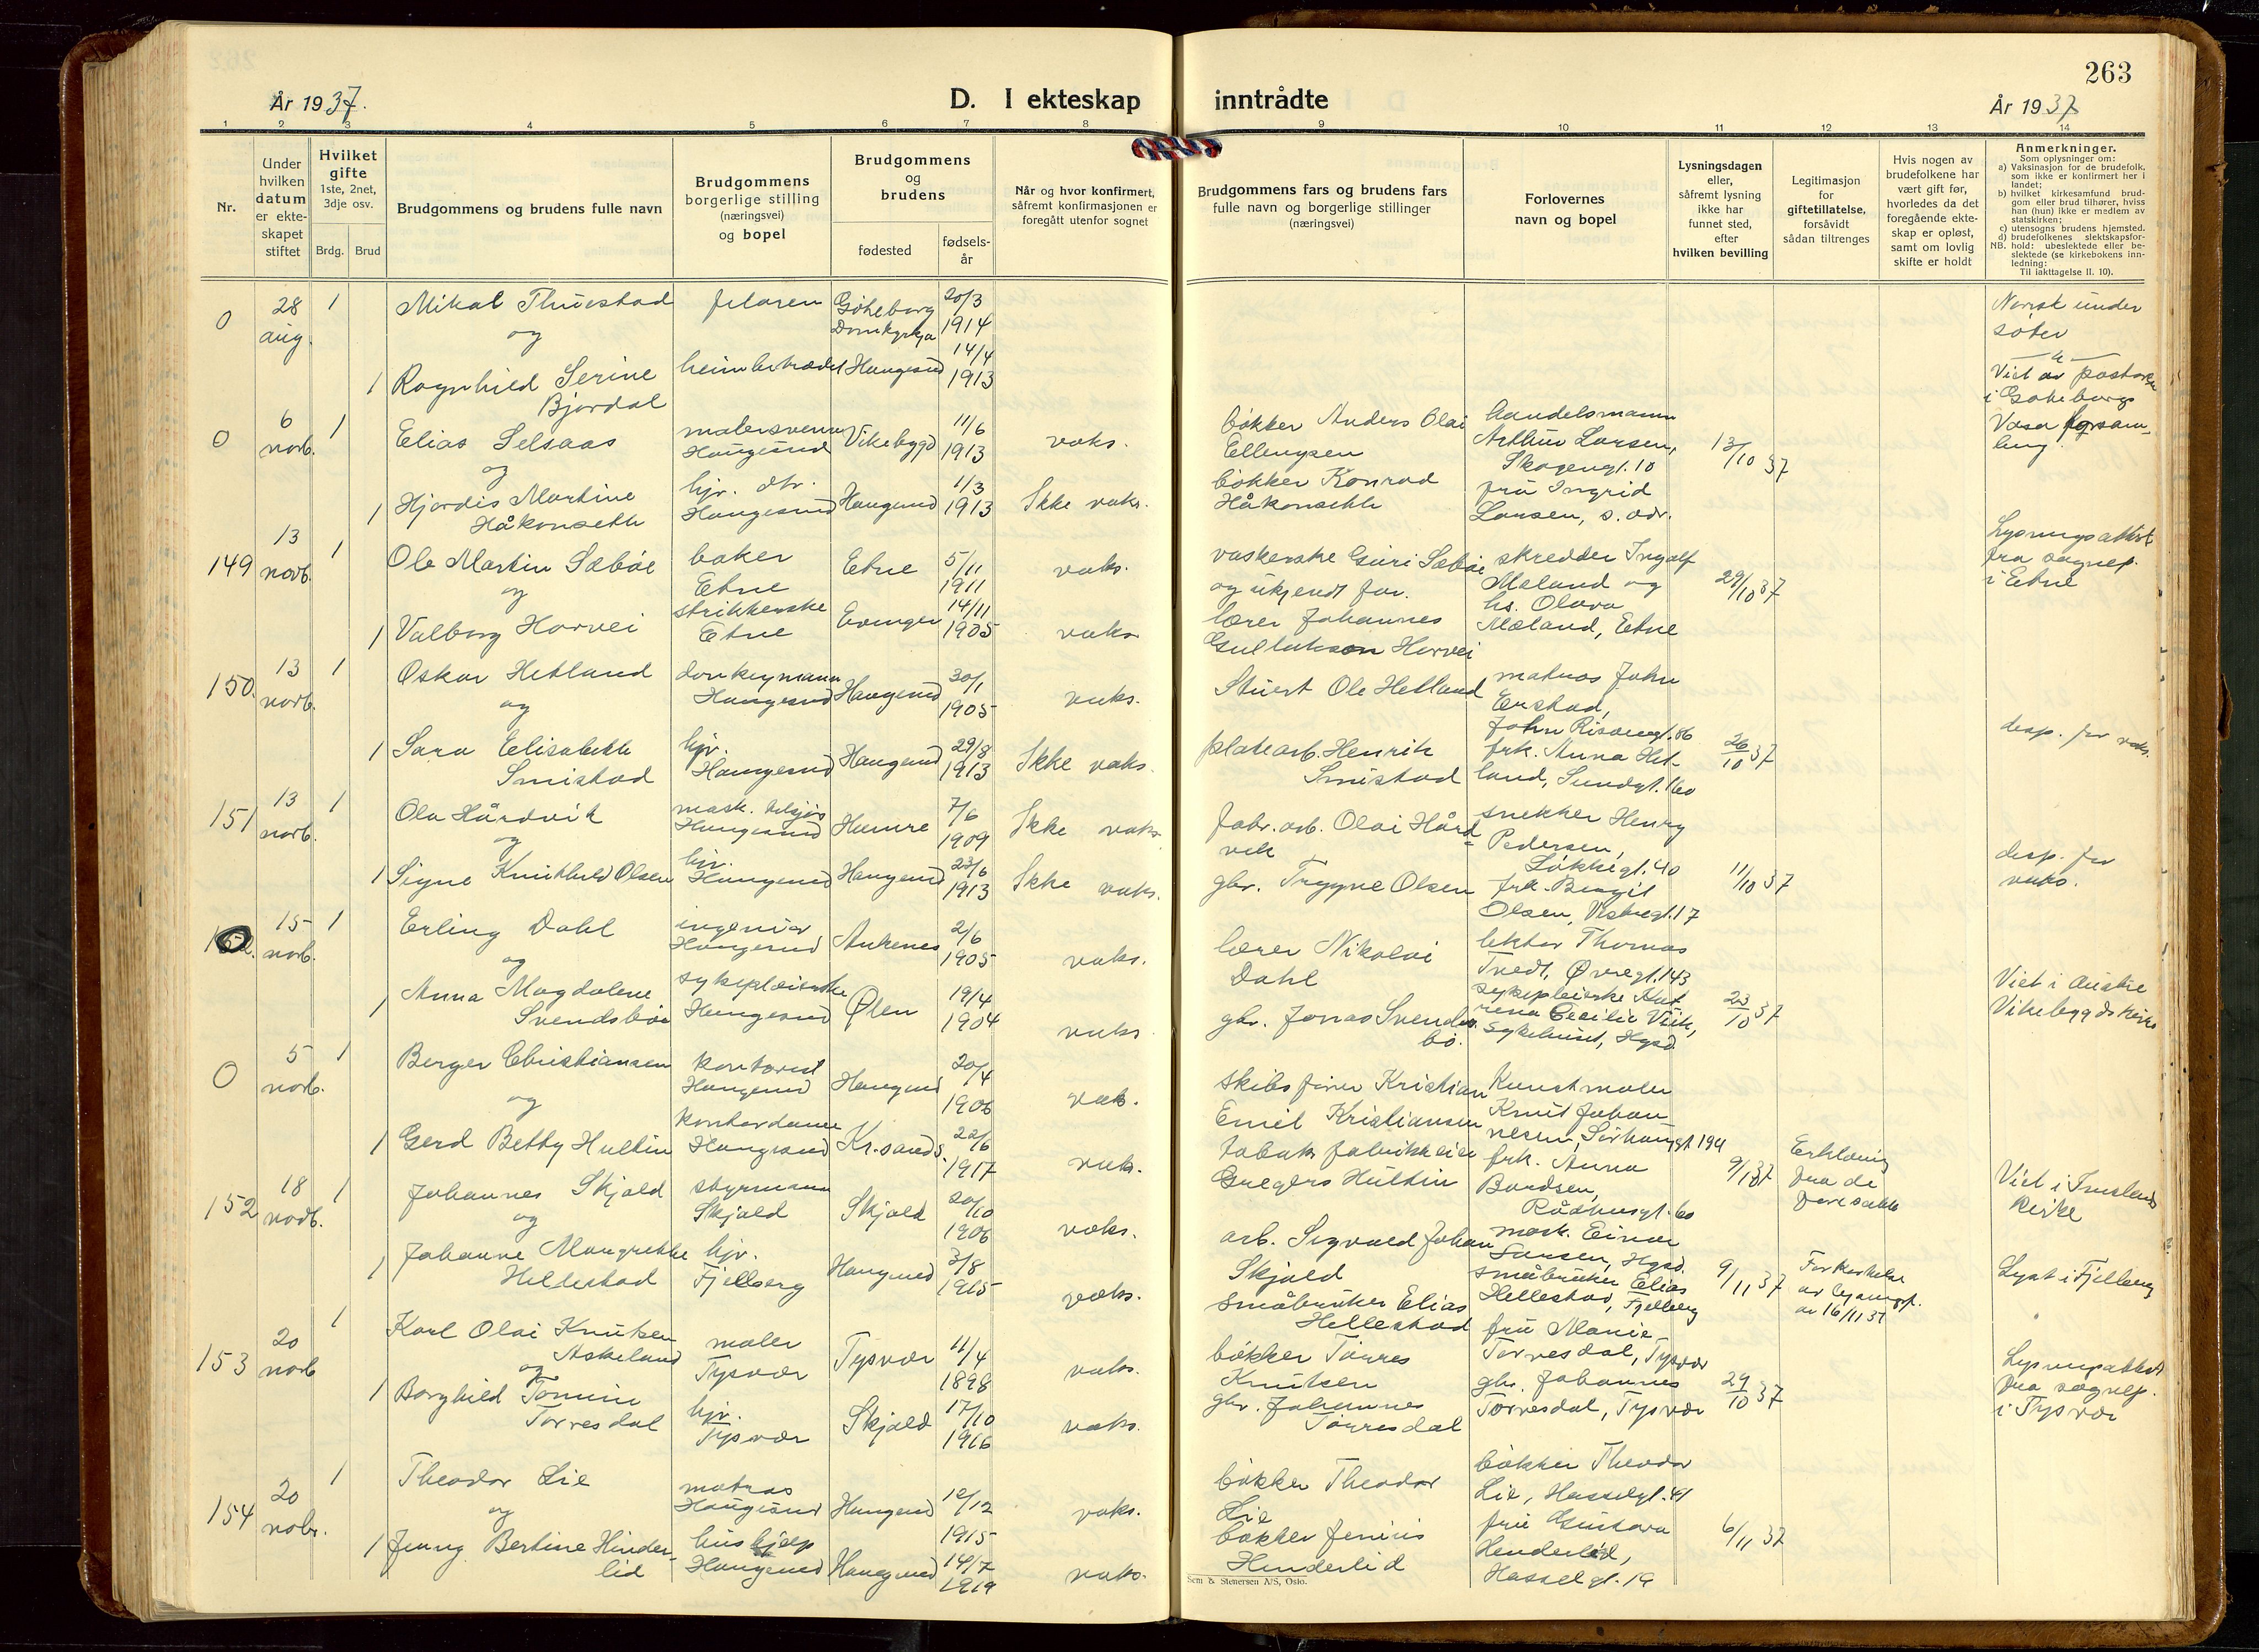 263
År 1937.
D. I ekteskap inntrådte
År 1937
1 2 3 4 5 6 7 8 9 10 11 12 13 14
Nr.
Under
hvilken
datum
er ekte-
skapet
stiftet
Hvilket
gifte
1ste, 2net,
3dje osv.
Brdg. Brud
Brudgommens og brudens fulle navn
Brudgommens
borgerlige stilling
(næringsvei)
og bopel
Brudgommens
og
brudens
fødested
fødsels-
år
Når og hvor konfirmert,
såfremt konfirmasjonen er
foregått utenfor sognet
Brudgommens fars og brudens fars
fulle navn og borgerlige stillinger
(næringsvei)
Forlovernes
navn og bopel
Lysningsdagen
eller,
såfremt lysning
ikke har
funnet sted,
efter
hvilken bevilling
Legitimasjon
for
giftetillatelse,
forsåvidt
sådan tiltrenges
Hvis nogen av
brudefolkene har
vært gift før,
hvorledes da det
foregående ekte-
skap er opløst,
samt om lovlig
skifte er holdt
Anmerkninger.
Som oplysninger om:
a) Vaksinasjon for de brudefolk,
som ikke er konfirmert her i
landet;
b) hvilket kirkesamfund brud-
gom eller brud tilhører, hviss
han (hun) ikke er medlem av
statskirken;
c) utensogns brudens hjemsted.
d) brudefolkenes slektskapsfor-
NB. hold: ubeslektede eller be-
slektede (se kirkebokens inn-
ledning:
Til iakttagelse II. 10).
0
28
aug.
1
Mikal Thuestad
og
Göteborg
Domkyrkja
20/3
1914
Norsk under
såter
1
Ragnhild Serine
Bjordal
Haugesund
14/4
1913
Viet av pastor
i Göteborgs
Vasa forsam-
ling.
0
6
novb.
1
Elias Selsaas
og
malersvenn
Haugesund
Vikebygd
11/6
1913
vaks.
bøkker Anders Olai
Ellingsen
handelsmann
Arthur Larsen,
Skogengt. 10
13/10 37
1
Hjørdis Martine
Håkonseth
hjv. dtr.
Haugesund
Haugesund
1/3
1913
Ikke vaks.
bøkker Konrad
Håkonseth
fru Ingrid
Larsen, s. adr.
149
13
novb.
1
Ole Martin Sæbøe
og
baker
Etne
Etne
5/11
1911
vaks.
vaskerske Guri Sæbøe
og ukjendt far.
skredder Ingolf
Mæland og
hs. Olava
Mæland, Etne
29/10 37
Lysningsattest
fra sognep.
i Etne
1
Valborg Horvei
strikkerske
Etne
Evanger
14/11
1905
vaks
lærer Johannes
Gullakson Horvei
150.
13
novb.
1
Oskar Hetland
og
donkeymann
Haugesund
Haugesund
30/1
1905
vaks.
Stuert Ole Hetland
matros John
Erstad,
26/10 37
disp. for vaks.
1
Sara Elisabeth
Smistad
hjv.
Haugesund
Haugesund
29/8
1913
Ikke vaks.
platearb. Henrik
Smistad
frk. Anna Het-
land, Sundgt. 160
151
13
novb.
1
Ola Hårdvik
og
Haugesund
Hamre
7/6
1909
Ikke vaks
fabr. arb. Olai Hård-
vik
snekker Henry
Pedersen,
Løkkegt. 40
11/10 37
disp. for
vaks.
1
Signe Knithild Olsen
hjv.
Haugesund
Haugesund
23/6
1913
Ikke vaks.
gbr. Trygve Olsen
frk. Bergit
Olsen, Vestregt. 17
15
novb.
1
Erling Dahl
og
ingeniør
Haugesund
Ankenes
2/6
1905
vaks.
lærer Nikolai
Dahl
lektor Thomas
Tvedt, Øvregt. 143
23/10 37
Viet i Austre
Vikebygds kirke
1
Anna Magdalene
Svendsbøe
sykepleierske
Haugesund
Ølen
19/4
1904
vaks
gbr. Jonas Svends-
bø.
sykepleierske Kat-
rina Cecilie Vik,
sykehuset, Hgsd.
0
5
novb.
1
Berger Christiansen
og
kontorist
Haugesund
Haugesund
20/4
1906
vaks.
skibsfører Kristian
Emil Kristiansen
Kunstmaler
Knut Johan-
nesen, Sørhaugt. 194
9/1 37
Erklæring
fra de
Viet i Imsland
kirke
1
Gerd Betty Hultin
kontordame
Haugesund
Kr.sands.
22/6
1917
vaks.
tobaksfabrikkeier
Gregers Hultin
frk. Anna
Bordsen,
Rådhusgt. 60
152
18
novb.
1
Johannes Skjold
og
styrmann
Skjold
Skjold
20/10
1906
vaks.
arb. Sigvald Johan
Skjold
mask. Einar
Hgsd.
9/11 37
av 16/11 37
Lyst i Fjelberg
1
Johanne Margrethe
Hellestad
hjv.
Fjelberg
Haugesund
3/8
1915
vaks.
småbruker Elias
Hellestad
småbruker Elias
Hellestad, Fjelberg
153
20
novb
1
Karl Olai Knutsen
Askeland
og
maler
Tysvær
Tysvær
11/4
1898
vaks.
bøkker Tørres
Knutsen
fru Marie
Torvesdal, Tysvær
29/10 37
Lysningsattest
fra sognep.
i Tysvær
1
Borghild Tomine
Torvesdal
hjv.
Tysvær
Skjold
17/10
1916
vaks.
gbr. Johannes
Torvesdal
gbr. Johannes
Torvesdal, Tysvær
154
20
nobr.
1
Theodor Lie
og
matros
Haugesund
Haugesund
12/12
1915
vaks.
bøkker Theodor
Lie
bøkker Theodor
Lie, Hasselgt. 41
6/11 37
1
Jenny Bertine Hinder-
lid
hushjelp
Haugesund
Haugesund
14/7
1919
vaks.
bøkker
Hinderlid
fru Gustava
Henderlid,
Hasselgt. 19
Sem & Stenersen A/S, Oslo.